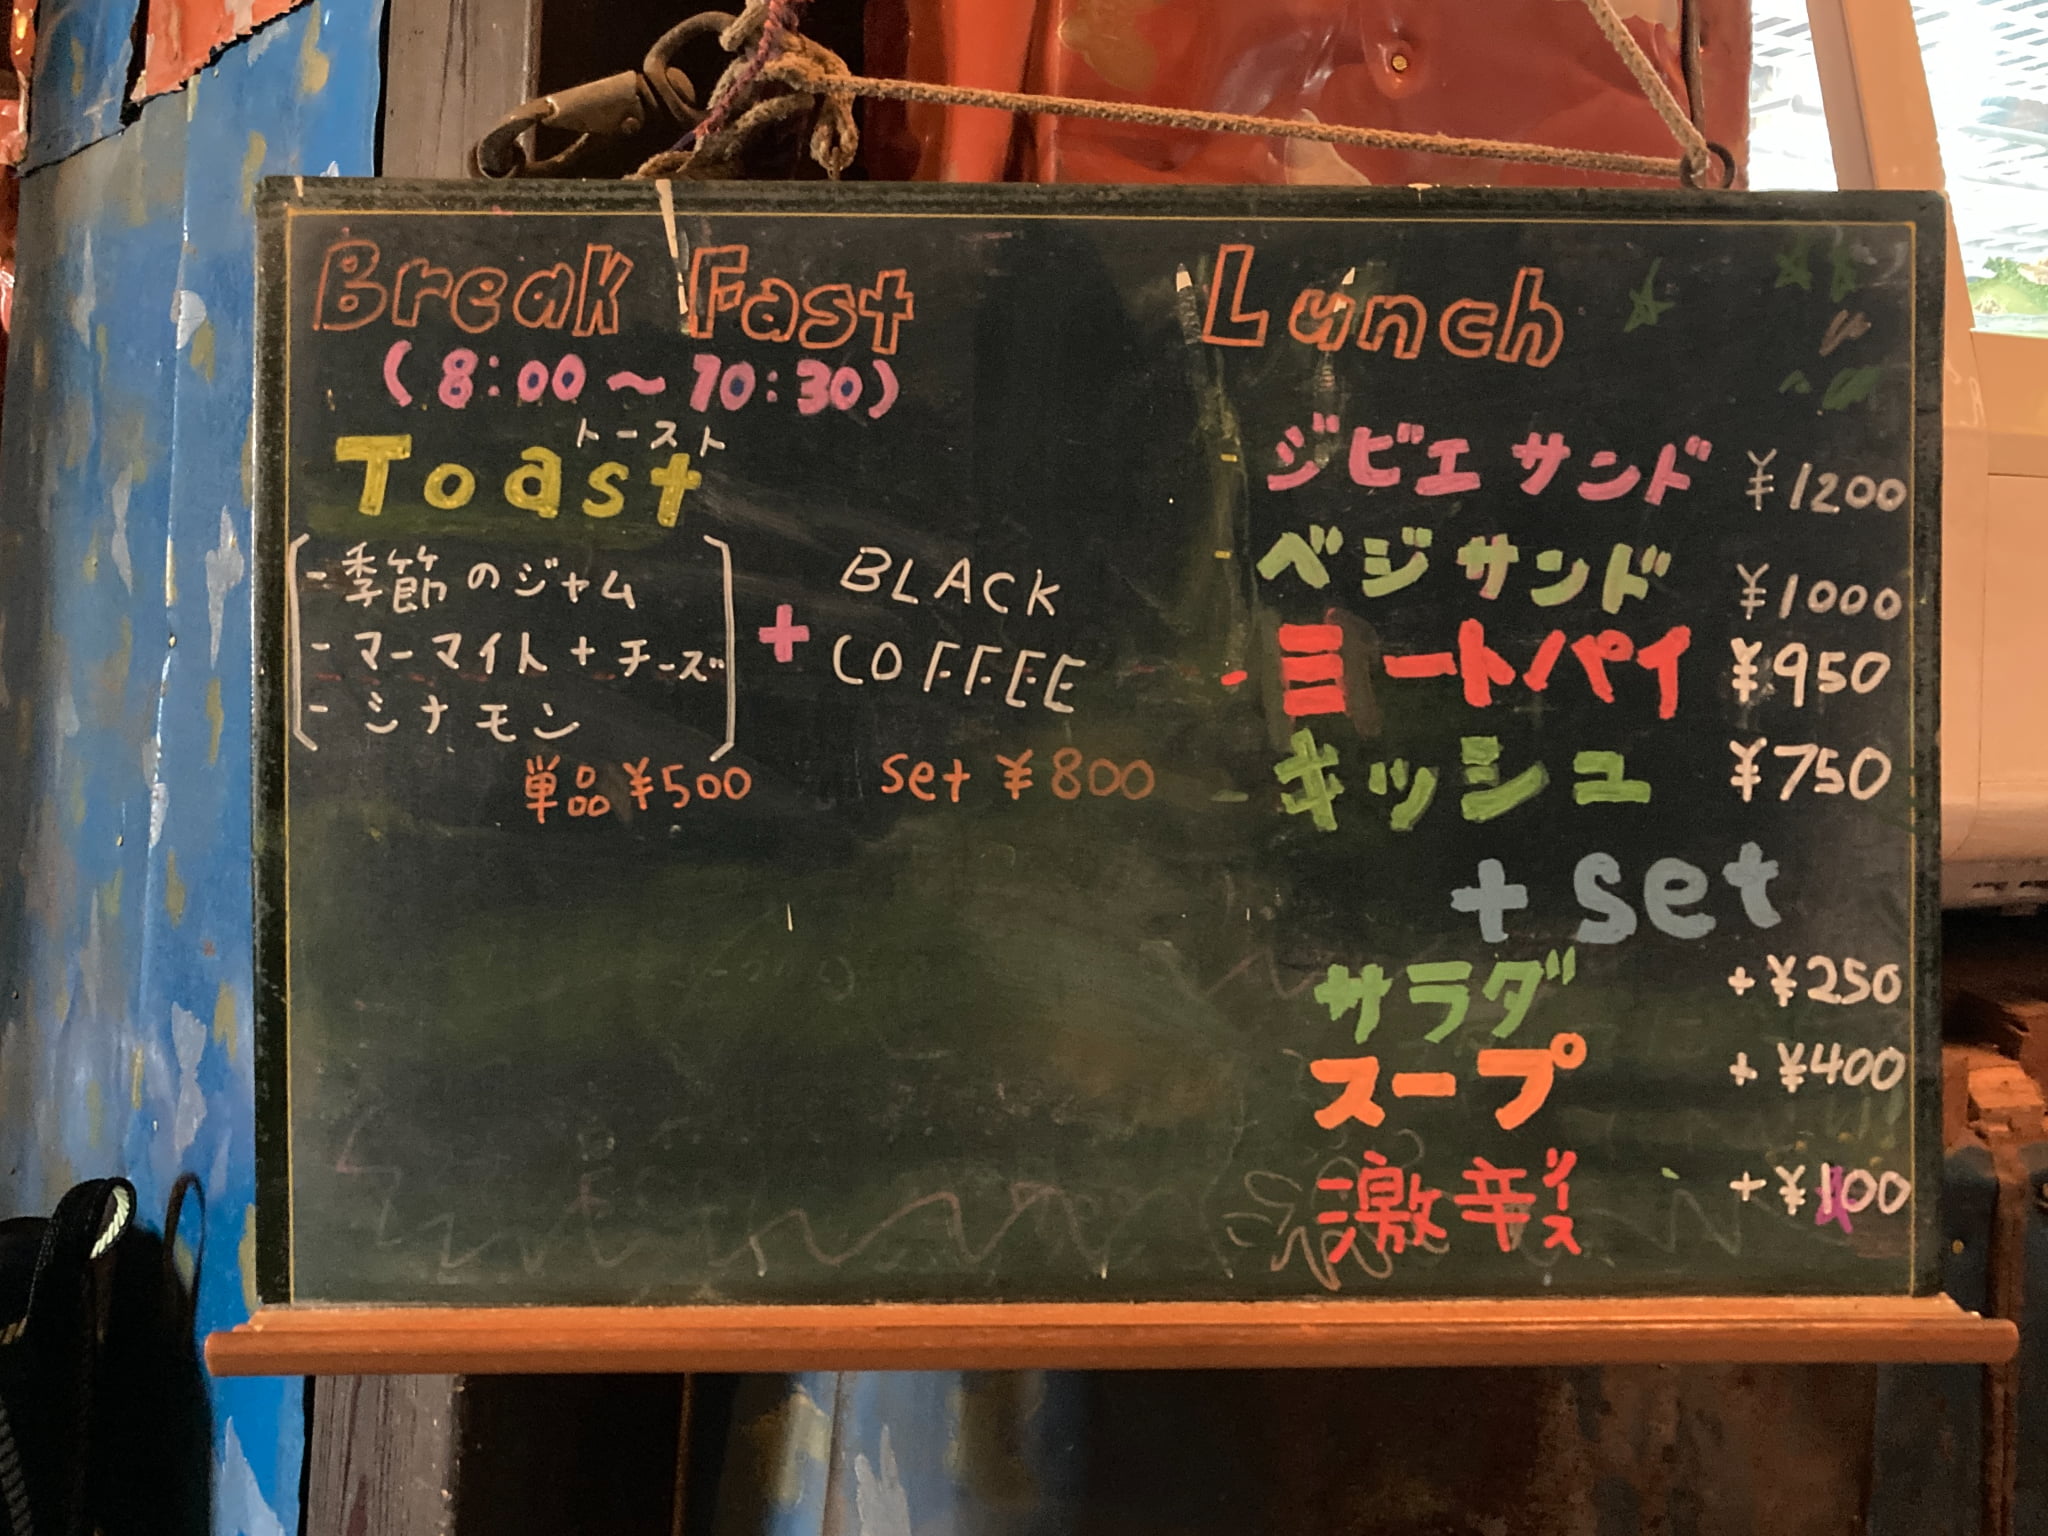 Break Fast
(8:00〜10:30)
トースト
Toast
- 季節のジャム
- マーマイト + チーズ
- シナモン
+
BLACK
COFFEE
単品 ¥500
set ¥800
Lunch
- ジビエサンド ¥1200
- ベジサンド ¥1000
- ミートパイ ¥950
- キッシュ ¥750
+ set
サラダ +¥250
スープ +¥400
激辛ソース +¥100